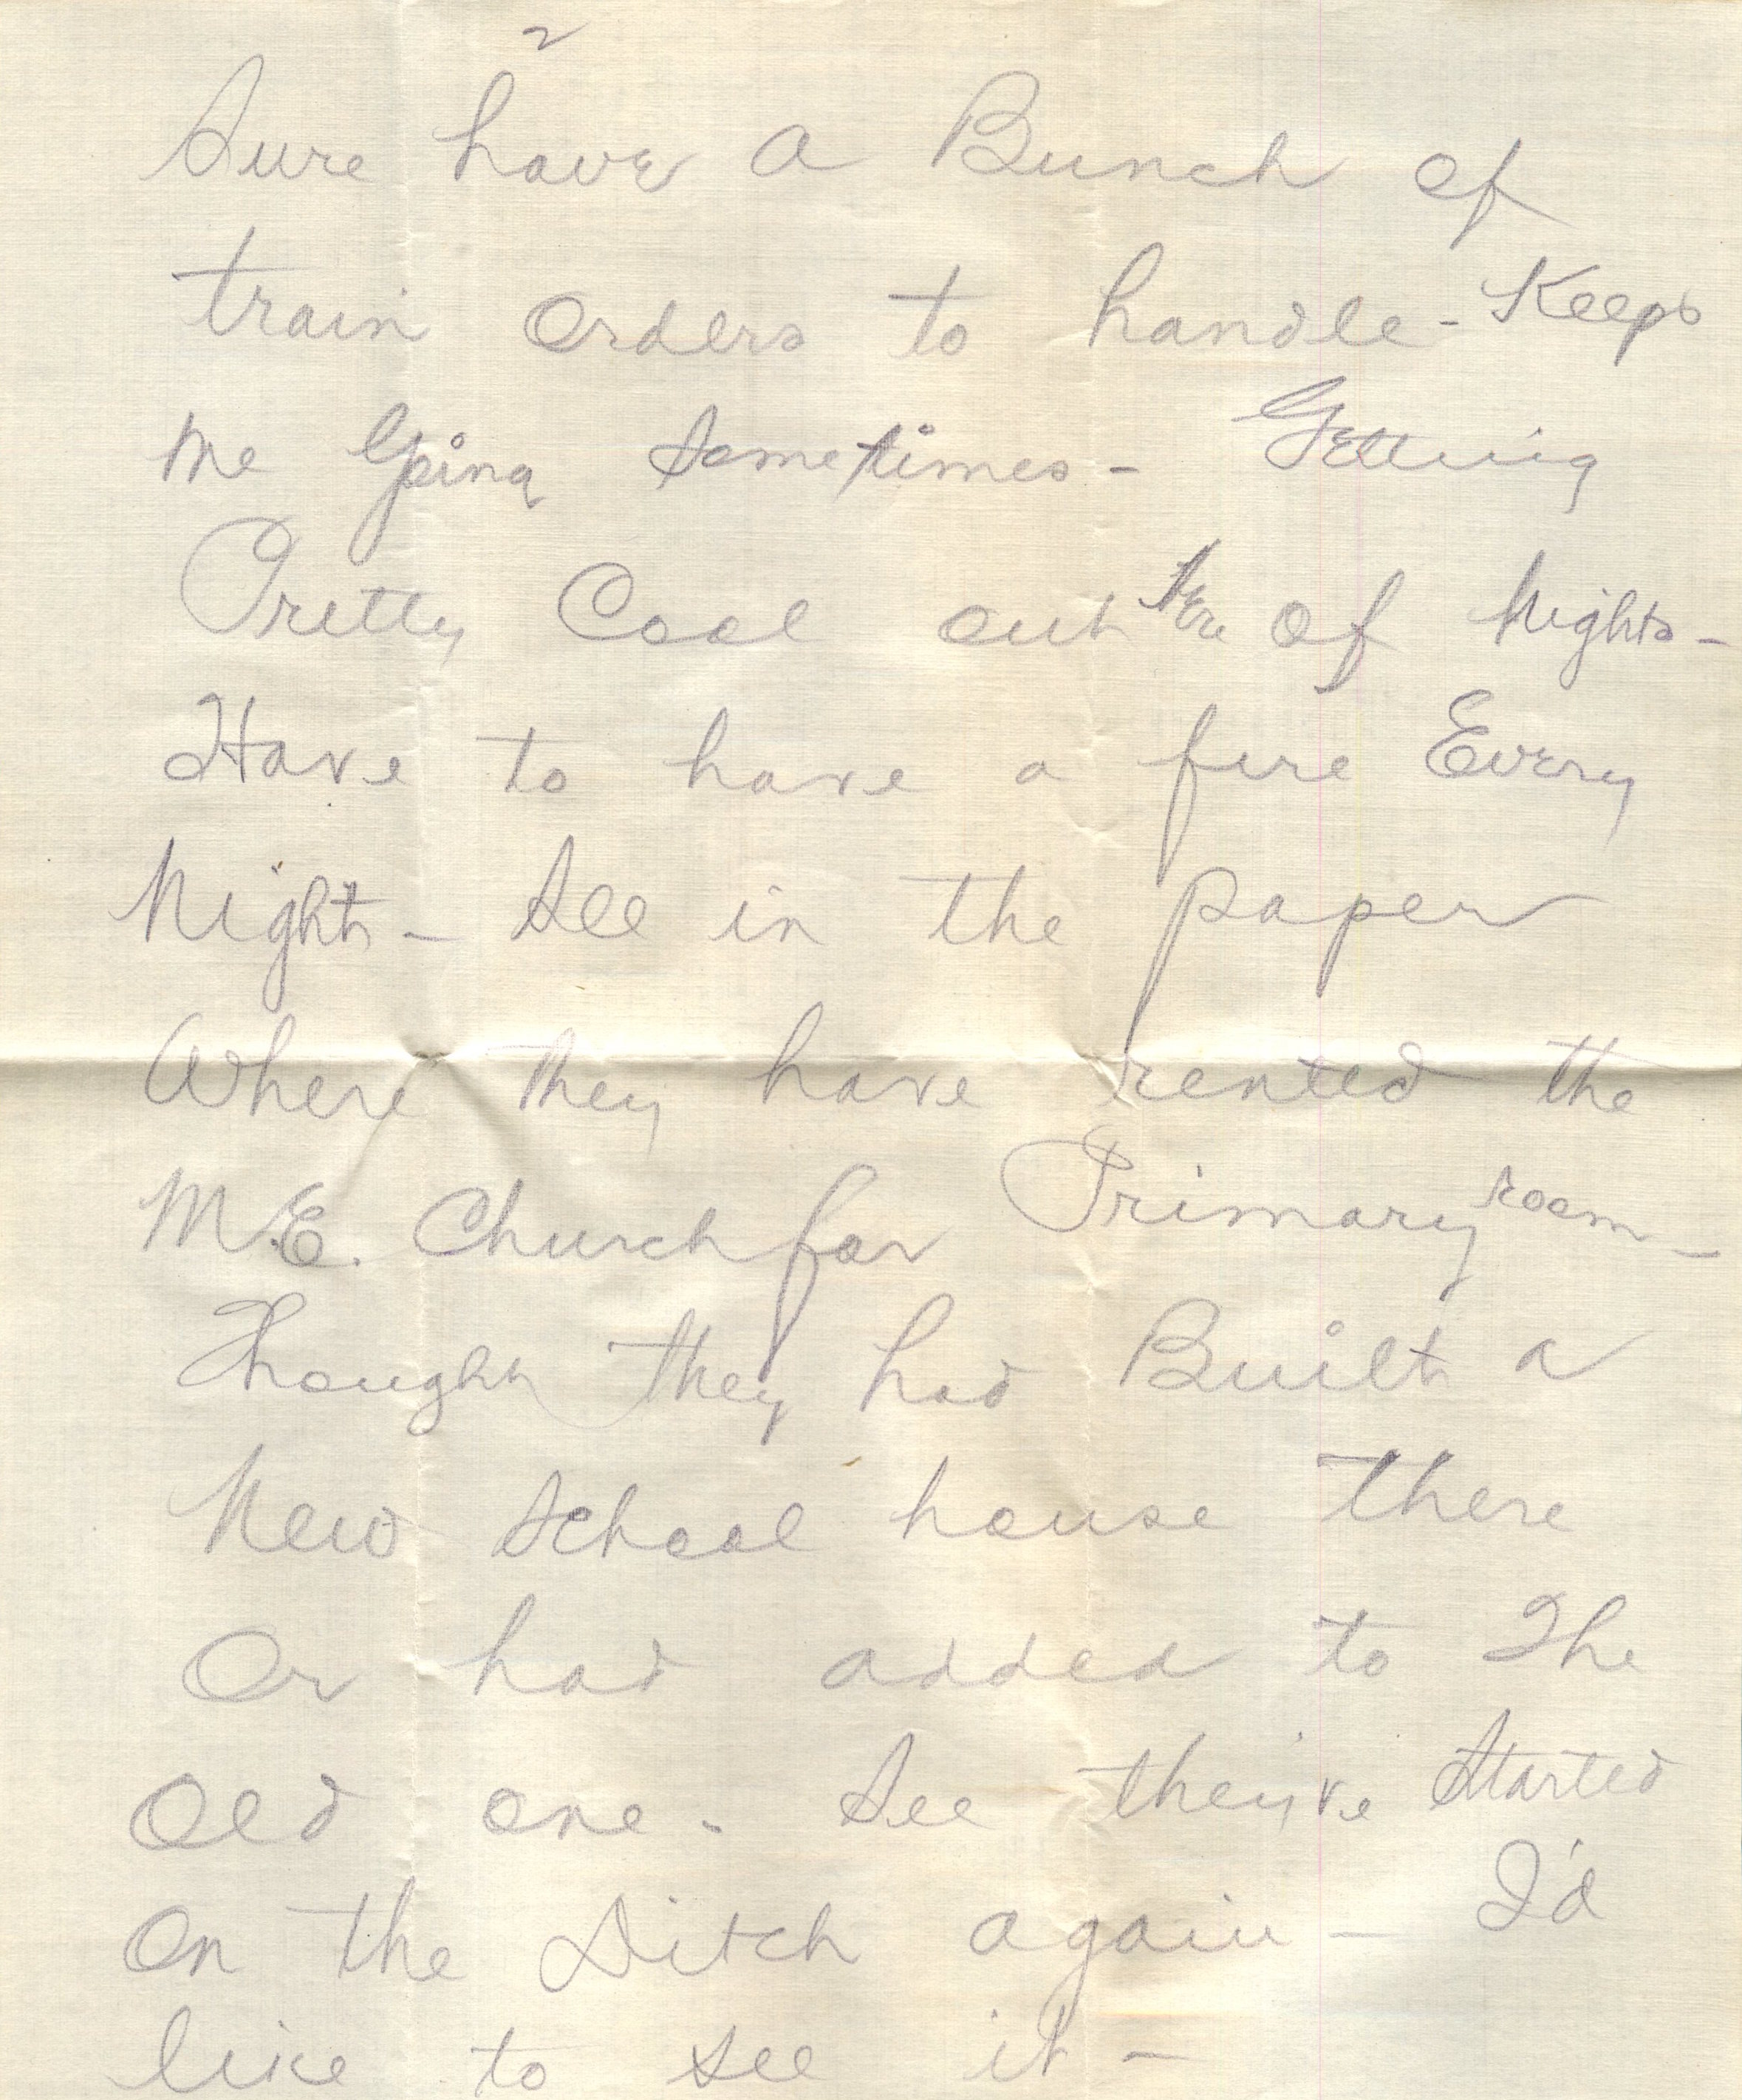 2
Sure have a Bunch of
train orders to handle - Keeps
me Going sometimes - Getting
Pretty Cool out here of Nights -
Have to have a fire Every
Night - See in the paper
Where they have rented the
M.E. Church for Primary room -
Thought they had Built a
New School house there
Or had added to The
Old one - See they've Started
On the Ditch again - I'd
like to see it -